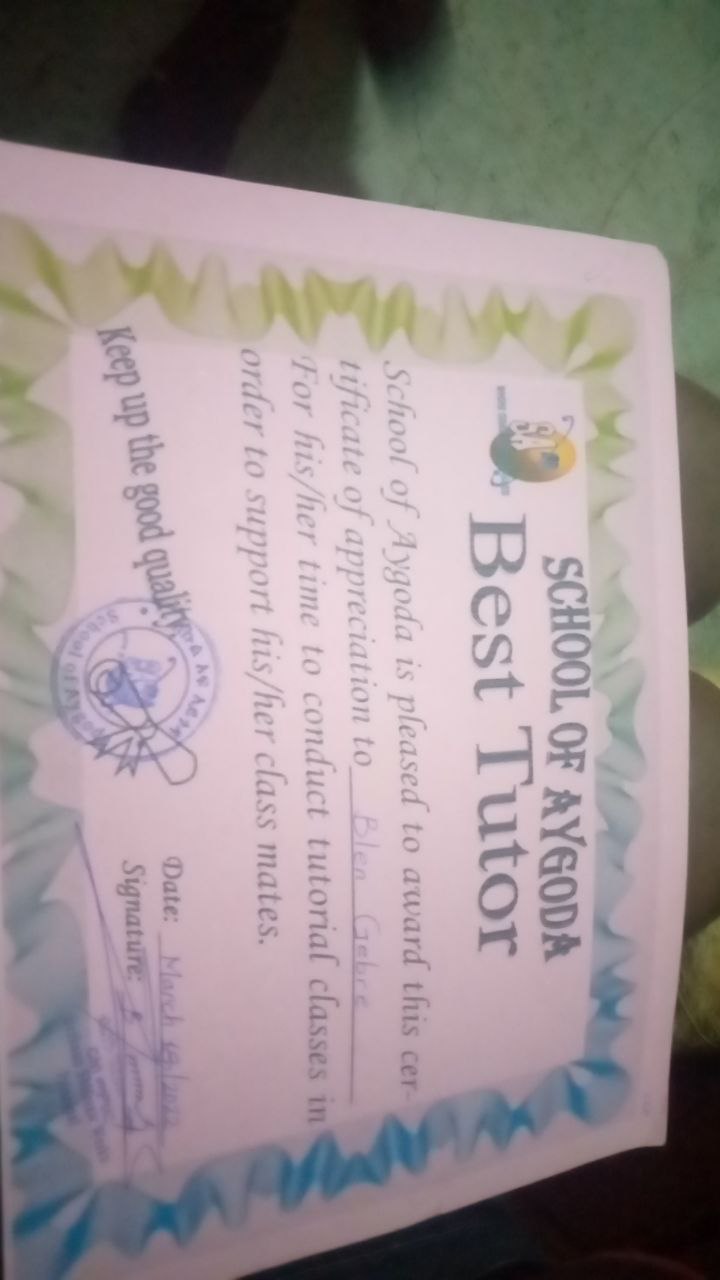 SCHOOL OF AYGODA
SA
Best Tutor
School of Aygoda is pleased to award this cer-
tificate of appreciation to Blen Gebre
For his/her time to conduct tutorial classes in
order to support his/her class mates.
Keep up the good quality.
School of Aygoda
Date: March /2022
Signature: